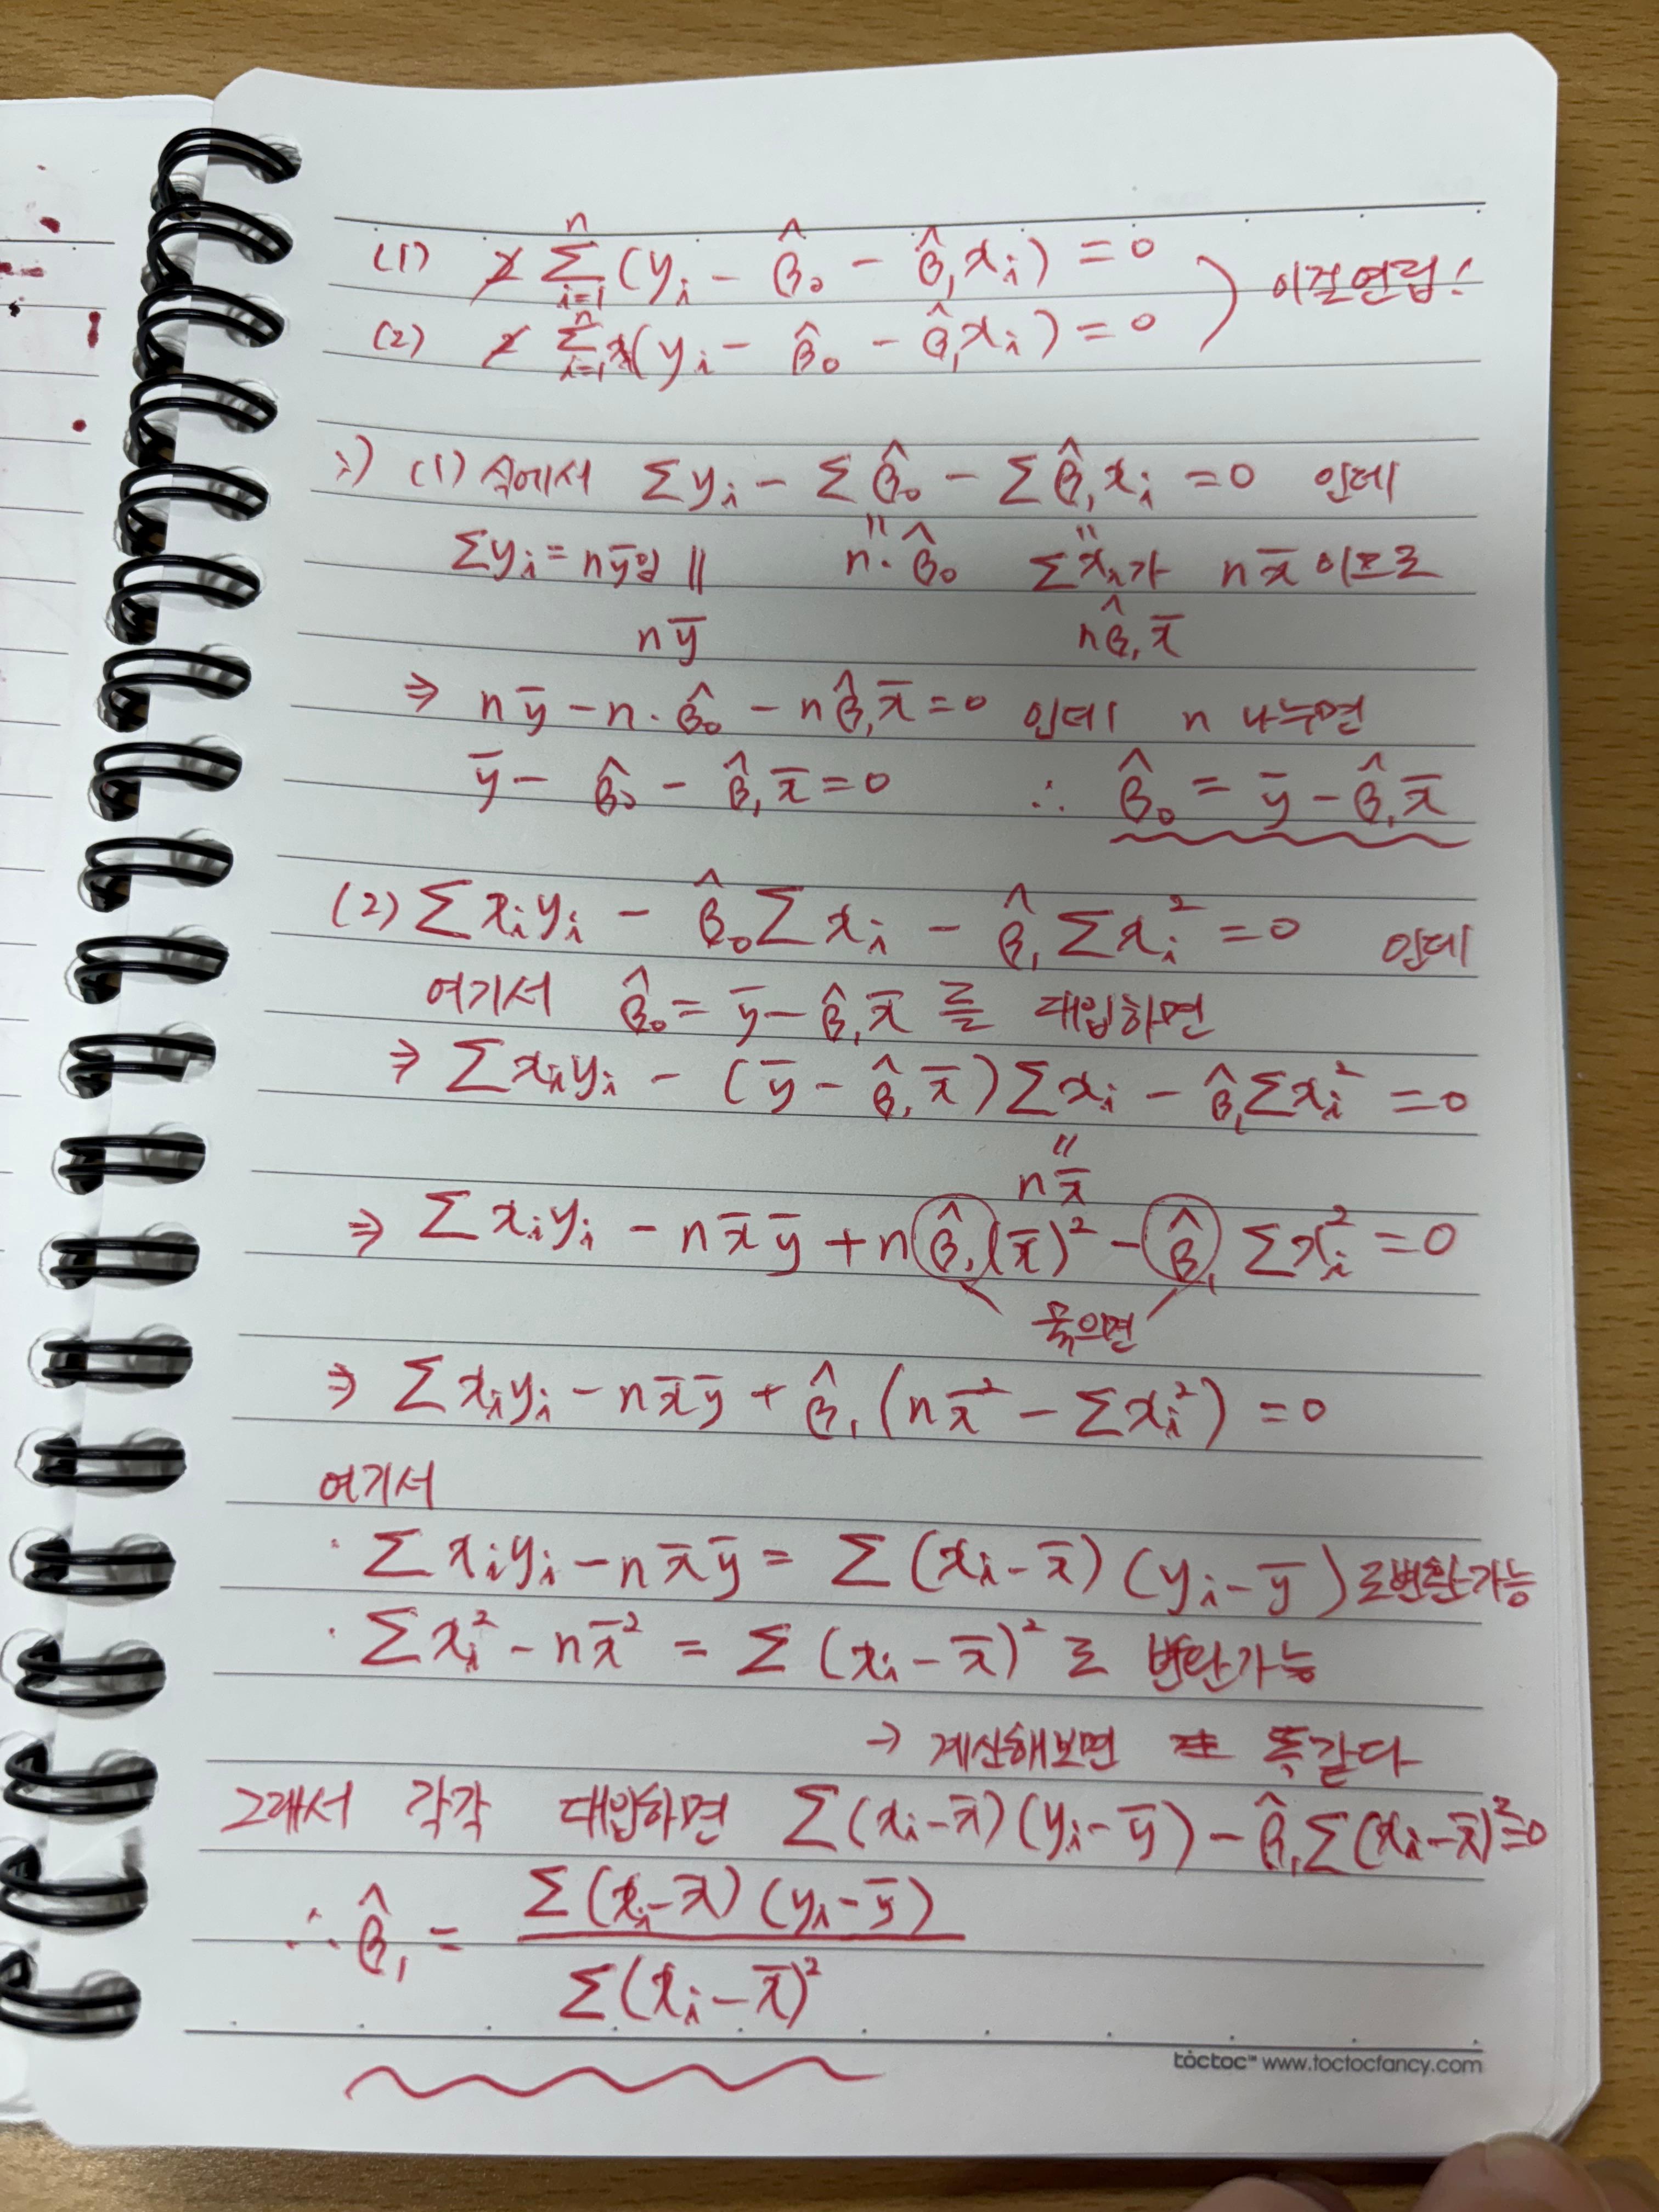 (1) 2 Σ_{i=1}^{n} (yᵢ - β̂₀ - β̂₁xᵢ) = 0
(2) 2 Σ_{i=1}^{n} xᵢ(yᵢ - β̂₀ - β̂₁xᵢ) = 0 ) 이걸 연립!
i) (1)식에서 Σyᵢ - Σβ̂₀ - Σβ̂₁xᵢ = 0 인데
Σyᵢ = nȳ임 || n·β̂₀ Σxᵢ가 nx̄ 이므로
nȳ nβ̂₁x̄
⇒ nȳ - n·β̂₀ - nβ̂₁x̄ = 0 인데 n 나누면
ȳ - β̂₀ - β̂₁x̄ = 0 ∴ β̂₀ = ȳ - β̂₁x̄
(2) Σxᵢyᵢ - β̂₀Σxᵢ - β̂₁Σxᵢ² = 0 인데
여기서 β̂₀ = ȳ - β̂₁x̄ 를 대입하면
⇒ Σxᵢyᵢ - (ȳ - β̂₁x̄)Σxᵢ - β̂₁Σxᵢ² = 0
|| nx̄
⇒ Σxᵢyᵢ - nx̄ȳ + nβ̂₁(x̄)² - β̂₁Σxᵢ² = 0
묶으면
⇒ Σxᵢyᵢ - nx̄ȳ + β̂₁(nx̄² - Σxᵢ²) = 0
여기서
· Σxᵢyᵢ - nx̄ȳ = Σ(xᵢ - x̄)(yᵢ - ȳ)로 변환가능
· Σxᵢ² - nx̄² = Σ(xᵢ - x̄)² 로 변환가능
→ 계산해보면 똑같다
그래서 각각 대입하면 Σ(xᵢ - x̄)(yᵢ - ȳ) - β̂₁Σ(xᵢ - x̄)² = 0
∴ β̂₁ = Σ(xᵢ - x̄)(yᵢ - ȳ)
Σ(xᵢ - x̄)²
tòctoc™ www.toctocfancy.com